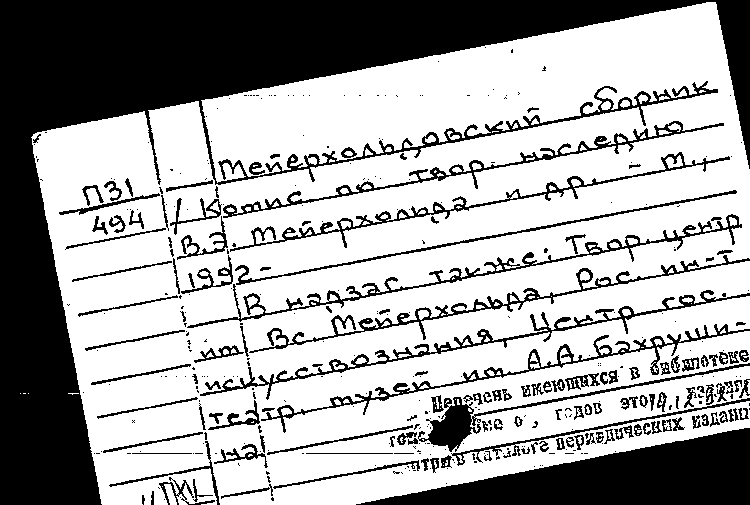 Мейерхольдовский сборник
П31
494
/ Комис. по твор. наследию
В.Э. Мейерхольда и др. - М.,
1992-
В надзаг. также: Твор. центр
им. Вс. Мейерхольда, Рос. ин-т
искусствознания, Центр гос.
театр. музей им. А.А. Бахруши-
на.
Перечень имеющихся в библиотеке
годов этого издания
в каталоге периодических изданий